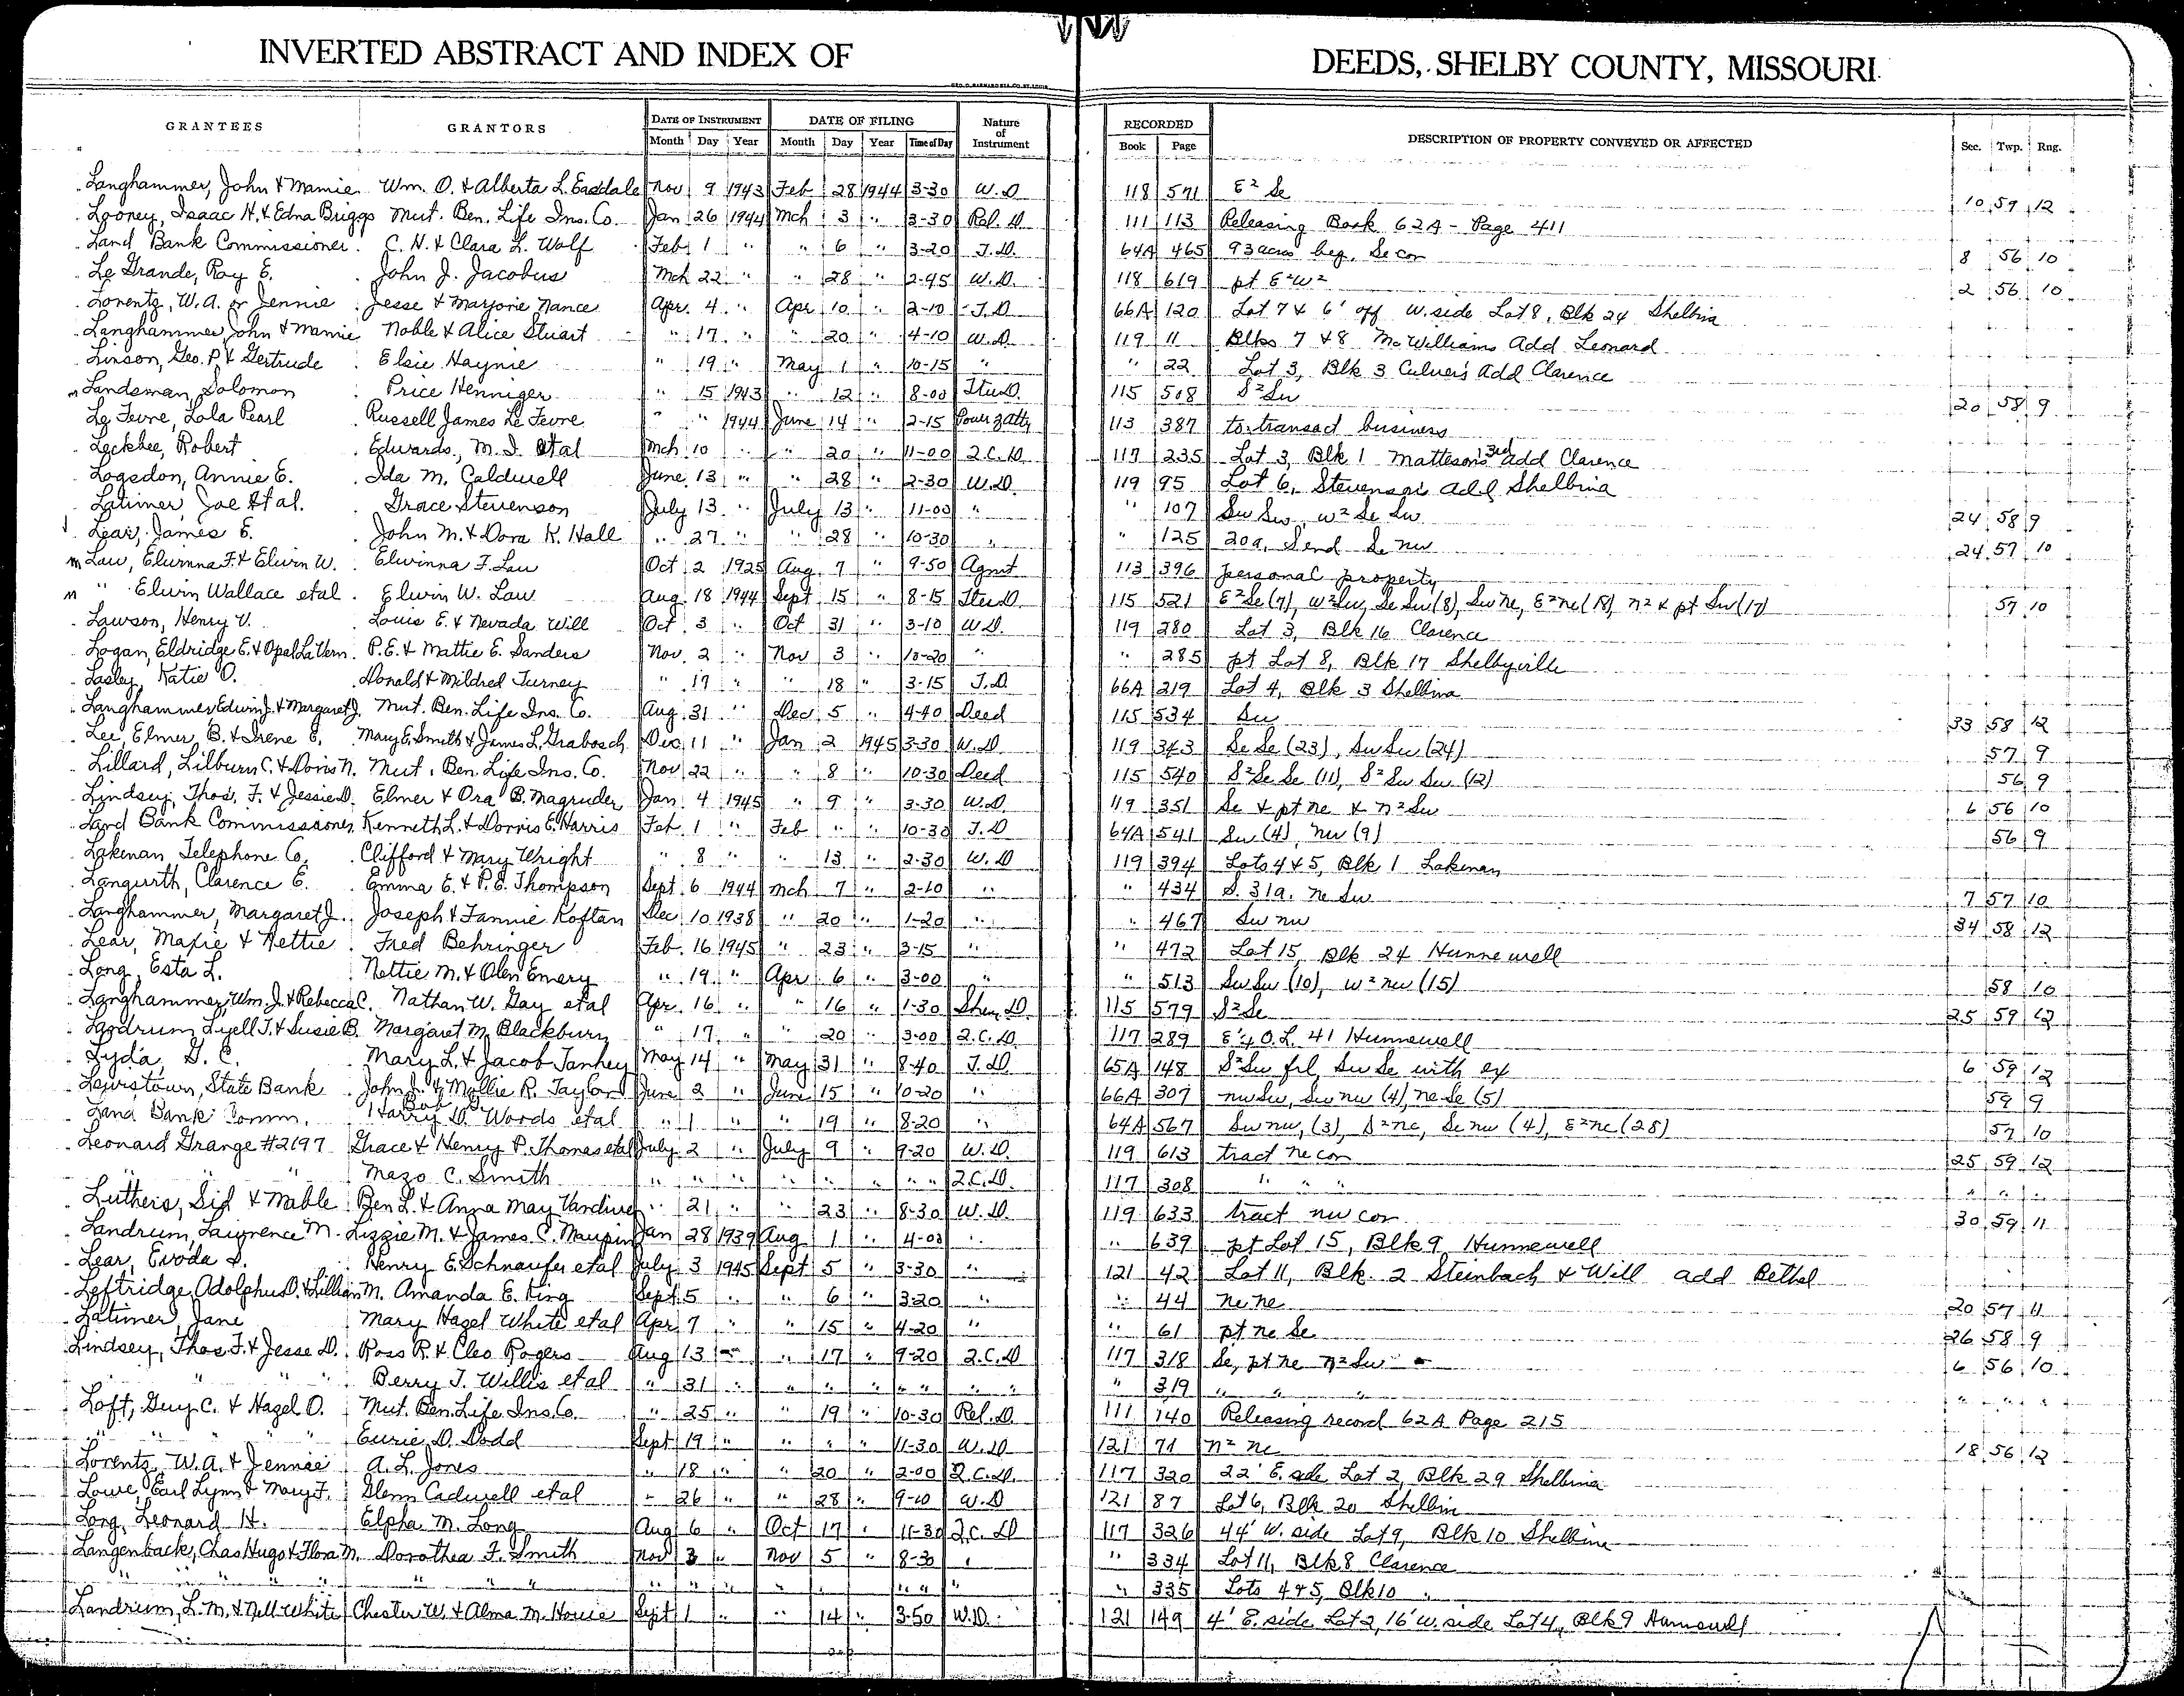 INVERTED ABSTRACT AND INDEX OF DEEDS, SHELBY COUNTY, MISSOURI
GRANTEES GRANTORS DATE OF INSTRUMENT DATE OF FILING Nature of Instrument RECORDED DESCRIPTION OF PROPERTY CONVEYED OR AFFECTED Sec. Twp. Rng.
Month Day Year Month Day Year Time of Day Book Page
Langhammer, John & Mamie Wm. O. & Alberta L. Easdale Nov 9 1943 Feb 28 1944 3-30 W.D. 118 571 E² Se 10 59 12
Looney, Isaac H. & Edna Briggs Mut. Ben. Life Ins. Co. Jan 26 1944 Mch 3 " 3-30 Rel. D. 111 113 Releasing Book 62A - Page 411
Land Bank Commissioner C. H. & Clara L. Wolf Feb 1 " " 6 " 3-20 T.D. 64A 465 93 acres beg. Se cor 8 56 10
Le Grande, Roy E. John J. Jacobus Mch 22 " " 28 " 2-45 W.D. 118 619 pt E²W² 2 56 10
Lorentz, W.A. or Jennie Jesse & Marjorie Nance Apr. 4 " Apr 10 " 2-10 T.D. 66A 120 Lot 7 & 6' off W. side Lot 8, Blk 24 Shelbina
Langhammer, John & Mamie Noble & Alice Stuart " 17 " " 20 " 4-10 W.D. 119 11 Blks 7 & 8 McWilliams Add Leonard
Linson, Geo. P. & Gertrude Elsie Haynie " 19 " May 1 " 10-15 " " 22 Lot 3, Blk 3 Culver's Add Clarence
m Landsman, Solomon Price Henniger " 15 1943 " 12 " 8-00 Stu D. 115 508 S² Sw 20 58 9
Le Fevre, Lola Pearl Russell James Le Fevre " " 1944 June 14 " 2-15 Power of Atty 113 387 to transact business
Leckbee, Robert Edwards, M.I. etal Mch 10 " " 20 " 11-00 Q.C.D. 117 235 Lot 3, Blk 1 Matteson's 3rd add Clarence
Logsdon, Annie E. Ida M. Caldwell June 13 " " 28 " 2-30 W.D. 119 95 Lot 6, Stevenson's Add Shelbina
Latimer Joe etal. Grace Stevenson July 13 " July 13 " 11-00 " " 107 Sw Sw, W² Se Sw 24 58 9
Lear, James E. John M. & Dora K. Hall " 27 " " 28 " 10-30 " " 125 20a, S end Se nw 24 57 10
m Law, Elwinna F. & Elwin W. Elwinna F. Law Oct 2 1925 Aug. 7 " 9-50 Agmt 113 396 personal property
m " Elwin Wallace etal Elwin W. Law Aug. 18 1944 Sept 15 " 8-15 Stu D. 115 521 E² Se (7), W² Sw, Se Sw (8), Sw ne, E² ne (18), n² & pt Sw (17) 57 10
Lawson, Henry V. Louis E. & Nevada Will Oct 3 " Oct 31 " 3-10 W.D. 119 280 Lot 3, Blk 16 Clarence
Logan, Eldridge E. & Opal LaVern P.E. & Mattie E. Sanders Nov. 2 " Nov 3 " 10-20 " " 285 pt Lot 8, Blk 17 Shelbyville
Lasley, Katie O. Donald & Mildred Turney " 17 " " 18 " 3-15 T.D. 66A 219 Lot 4, Blk 3 Shelbina
Langhammer Edwin J. & Margaret J. Mut. Ben. Life Ins. Co. Aug. 31 " Dec 5 " 4-40 Deed 115 534 Sw 33 58 12
Lee, Elmer, B. & Irene E. Mary E. Smith & James L. Grabosch Dec. 11 " Jan 2 1945 3-30 W.D. 119 343 Se Se (23), Sw Sw (24) 57 9
Lillard, Lilburn C. & Doris N. Mut. Ben. Life Ins. Co. Nov 22 " " 8 " 10-30 Deed 115 540 S² Se Se (11), S² Sw Sw (12) 56 9
Lindsey, Thos. F. & Jessie D. Elmer & Ora B. Magruder Jan. 4 1945 " 9 " 3-30 W.D. 119 351 Se & pt ne & n² Sw 6 56 10
Land Bank Commissioner Kenneth L. & Dorris E. Harris Feb. 1 " Feb " " 10-30 T.D 64A 541 Sw (4), nw (9) 56 9
Lakenan Telephone Co. Clifford & Mary Wright " 8 " " 13 " 2-30 W.D 119 394 Lots 4 & 5, Blk 1 Lakenan
Langurth, Clarence E. Emma E. & P.E. Thompson Sept. 6 1944 Mch 7 " 2-10 " " 434 S. 31a. ne Sw 7 57 10
Langhammer, Margaret J. Joseph & Fannie Koftan Dec 10 1938 " 20 " 1-20 " " 467 Sw nw 34 58 12
Lear, Maxie & Nettie Fred Behringer Feb. 16 1945 " 23 " 3-15 " " 472 Lot 15, Blk 24 Hunnewell
Long, Esta L. Nettie M. & Olen Emery " 19 " Apr 6 " 3-00 " " 513 Sw Sw (10), W² nw (15) 58 10
Langhammer, Wm. J. & Rebecca C. Nathan W. Gay etal Apr. 16 " " 16 " 1-30 Sher. D. 115 579 S² Se 25 59 12
Landrum Lyell T. & Susie B. Margaret M. Blackburn " 17 " " 20 " 3-00 Q.C.D. 117 289 O.L. 41 Hunnewell
Lyda, G. C. Mary L. & Jacob Tanhey May 14 " May 31 " 8-40 T.D. 65A 148 S² Sw frl, Sw Se with ex 6 59 12
Lewistown, State Bank John J. & Mollie R. Taylor June 2 " June 15 " 10-20 " 66A 307 nw Sw, Sw nw (4), ne Se (5) 59 9
Land Bank Comm. Harry D. Woods etal " 1 " " 19 " 8-20 " 64A 567 Sw nw, (3), S² ne, Se nw (4), E² ne (28) 57 10
Leonard Grange #2197 Grace & Henry P. Thomas etal July 2 " July 9 " 9-20 W.D. 119 613 tract ne cor 25 59 12
" " " Mazo C. Smith " " " " " " " " Q.C.D. 117 308 " " " " " "
Luthers, Sid & Mable Ben L. & Anna May Vandiver " 21 " " 23 " 8-30 W.D. 119 633 tract nw cor 30 59 11
Landrum, Lawrence M. Lizzie M. & James C. Maupin Jan 28 1939 Aug 1 " 4-00 " " 639 pt Lot 15, Blk 9 Hunnewell
Lear, Evoda S. Henry E. Schnaufer etal July 3 1945 Sept 5 " 3-30 " 121 42 Lot 11, Blk 2 Steinbach & Will add Bethel
Leftridge, Adolphus D. & Lillian M. Amanda E. King Sept. 5 " " 6 " 3-20 " " 44 ne ne 20 57 11
Latimer, Jane Mary Hazel White etal Apr 7 " " 15 " 4-20 " " 61 pt ne Se 26 58 9
Lindsey, Thos. F. & Jesse D. Ross R. & Cleo Rogers Aug 13 " " 17 " 9-20 Q.C.D 117 318 Se, pt ne n² Sw 6 56 10
" " " Berry T. Willis etal " 31 " " " " " " " " 319 " " " " " "
Loft, Guy C. & Hazel O. Mut. Ben. Life Ins. Co. " 25 " " 19 " 10-30 Rel. D. 111 140 Releasing record 62A Page 215
" " " Eurie D. Dodd Sept 19 " " " " 11-30 W.D 121 71 n² ne 18 56 12
Lorentz, W.A. & Jennie A. L. Jones " 18 " " 20 " 2-00 Q.C.D. 117 320 22' E. side Lot 2, Blk 29 Shelbina
Lowe, Earl Lynn & Mary F. Glenn Cadwell etal " 26 " " 28 " 9-10 W.D 121 87 Lot 6, Blk 20 Shelbina
Long, Leonard H. Elpha M. Long Aug 6 " Oct 17 " 11-30 Q.C.D 117 326 44' W. side Lot 9, Blk 10 Shelbina
Langenback, Chas Hugo & Flora M. Dorothea F. Smith Nov 3 " Nov 5 " 8-30 " " 334 Lot 11, Blk 8 Clarence
" " " " " " " " " " " " " " " " 335 Lots 4 & 5, Blk 10 "
Landrum, L.M. & Nell White Chester W. & Alma M. House Sept 1 " " 14 " 3-50 W.D. 121 149 4' E. side Lot 2, 16' W. side Lot 4, Blk 9 Hunnewell